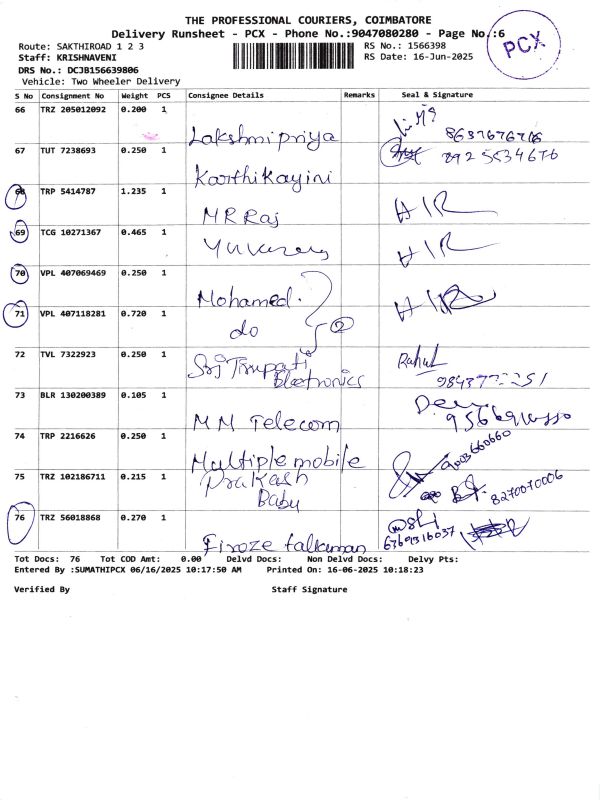 THE PROFESSIONAL COURIERS, COIMBATORE
Delivery Runsheet - PCX - Phone No.:9047080280 - Page No.:6
PCX
Route: SAKTHIROAD 1 2 3
RS No.: 1566398
Staff: KRISHNAVENI
RS Date: 16-Jun-2025
DRS No.: DCJB156639806
Vehicle: Two Wheeler Delivery
S No Consignment No Weight PCS Consignee Details Remarks Seal & Signature
66 TRZ 205012092 0.200 1
Lakshmipriya
67 TUT 7238693 0.250 1
Karthikayini
68 TRP 5414787 1.235 1
MR Raj
69 TCG 10271367 0.465 1
70 VPL 407069469 0.250 1
Mohamed.
71 VPL 407118281 0.720 1
do 2
72 TVL 7322923 0.250 1 Rahul
Sri Tirupati
Electronics
73 BLR 130200389 0.105 1
MM Telecom
74 TRP 2216626 0.250 1
Multiple mobile 9003660660
75 TRZ 102186711 0.215 1
Prakash
Babu 8270070006
76 TRZ 56018868 0.270 1
Firoze
Tot Docs: 76 Tot COD Amt: 0.00 Delvd Docs: Non Delvd Docs: Delvy Pts:
Entered By :SUMATHIPCX 06/16/2025 10:17:50 AM Printed On: 16-06-2025 10:18:23
Verified By Staff Signature